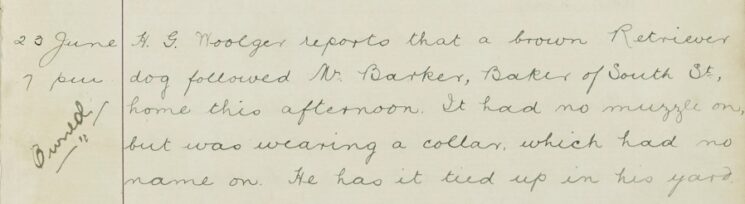 23 June H. G. Woolger reports that a brown Retriever
7 pm dog followed Mr. Barker, Baker of South St,
home this afternoon. It had no muzzle on,
Owned but was wearing a collar, which had no
name on. He has it tied up in his yard.